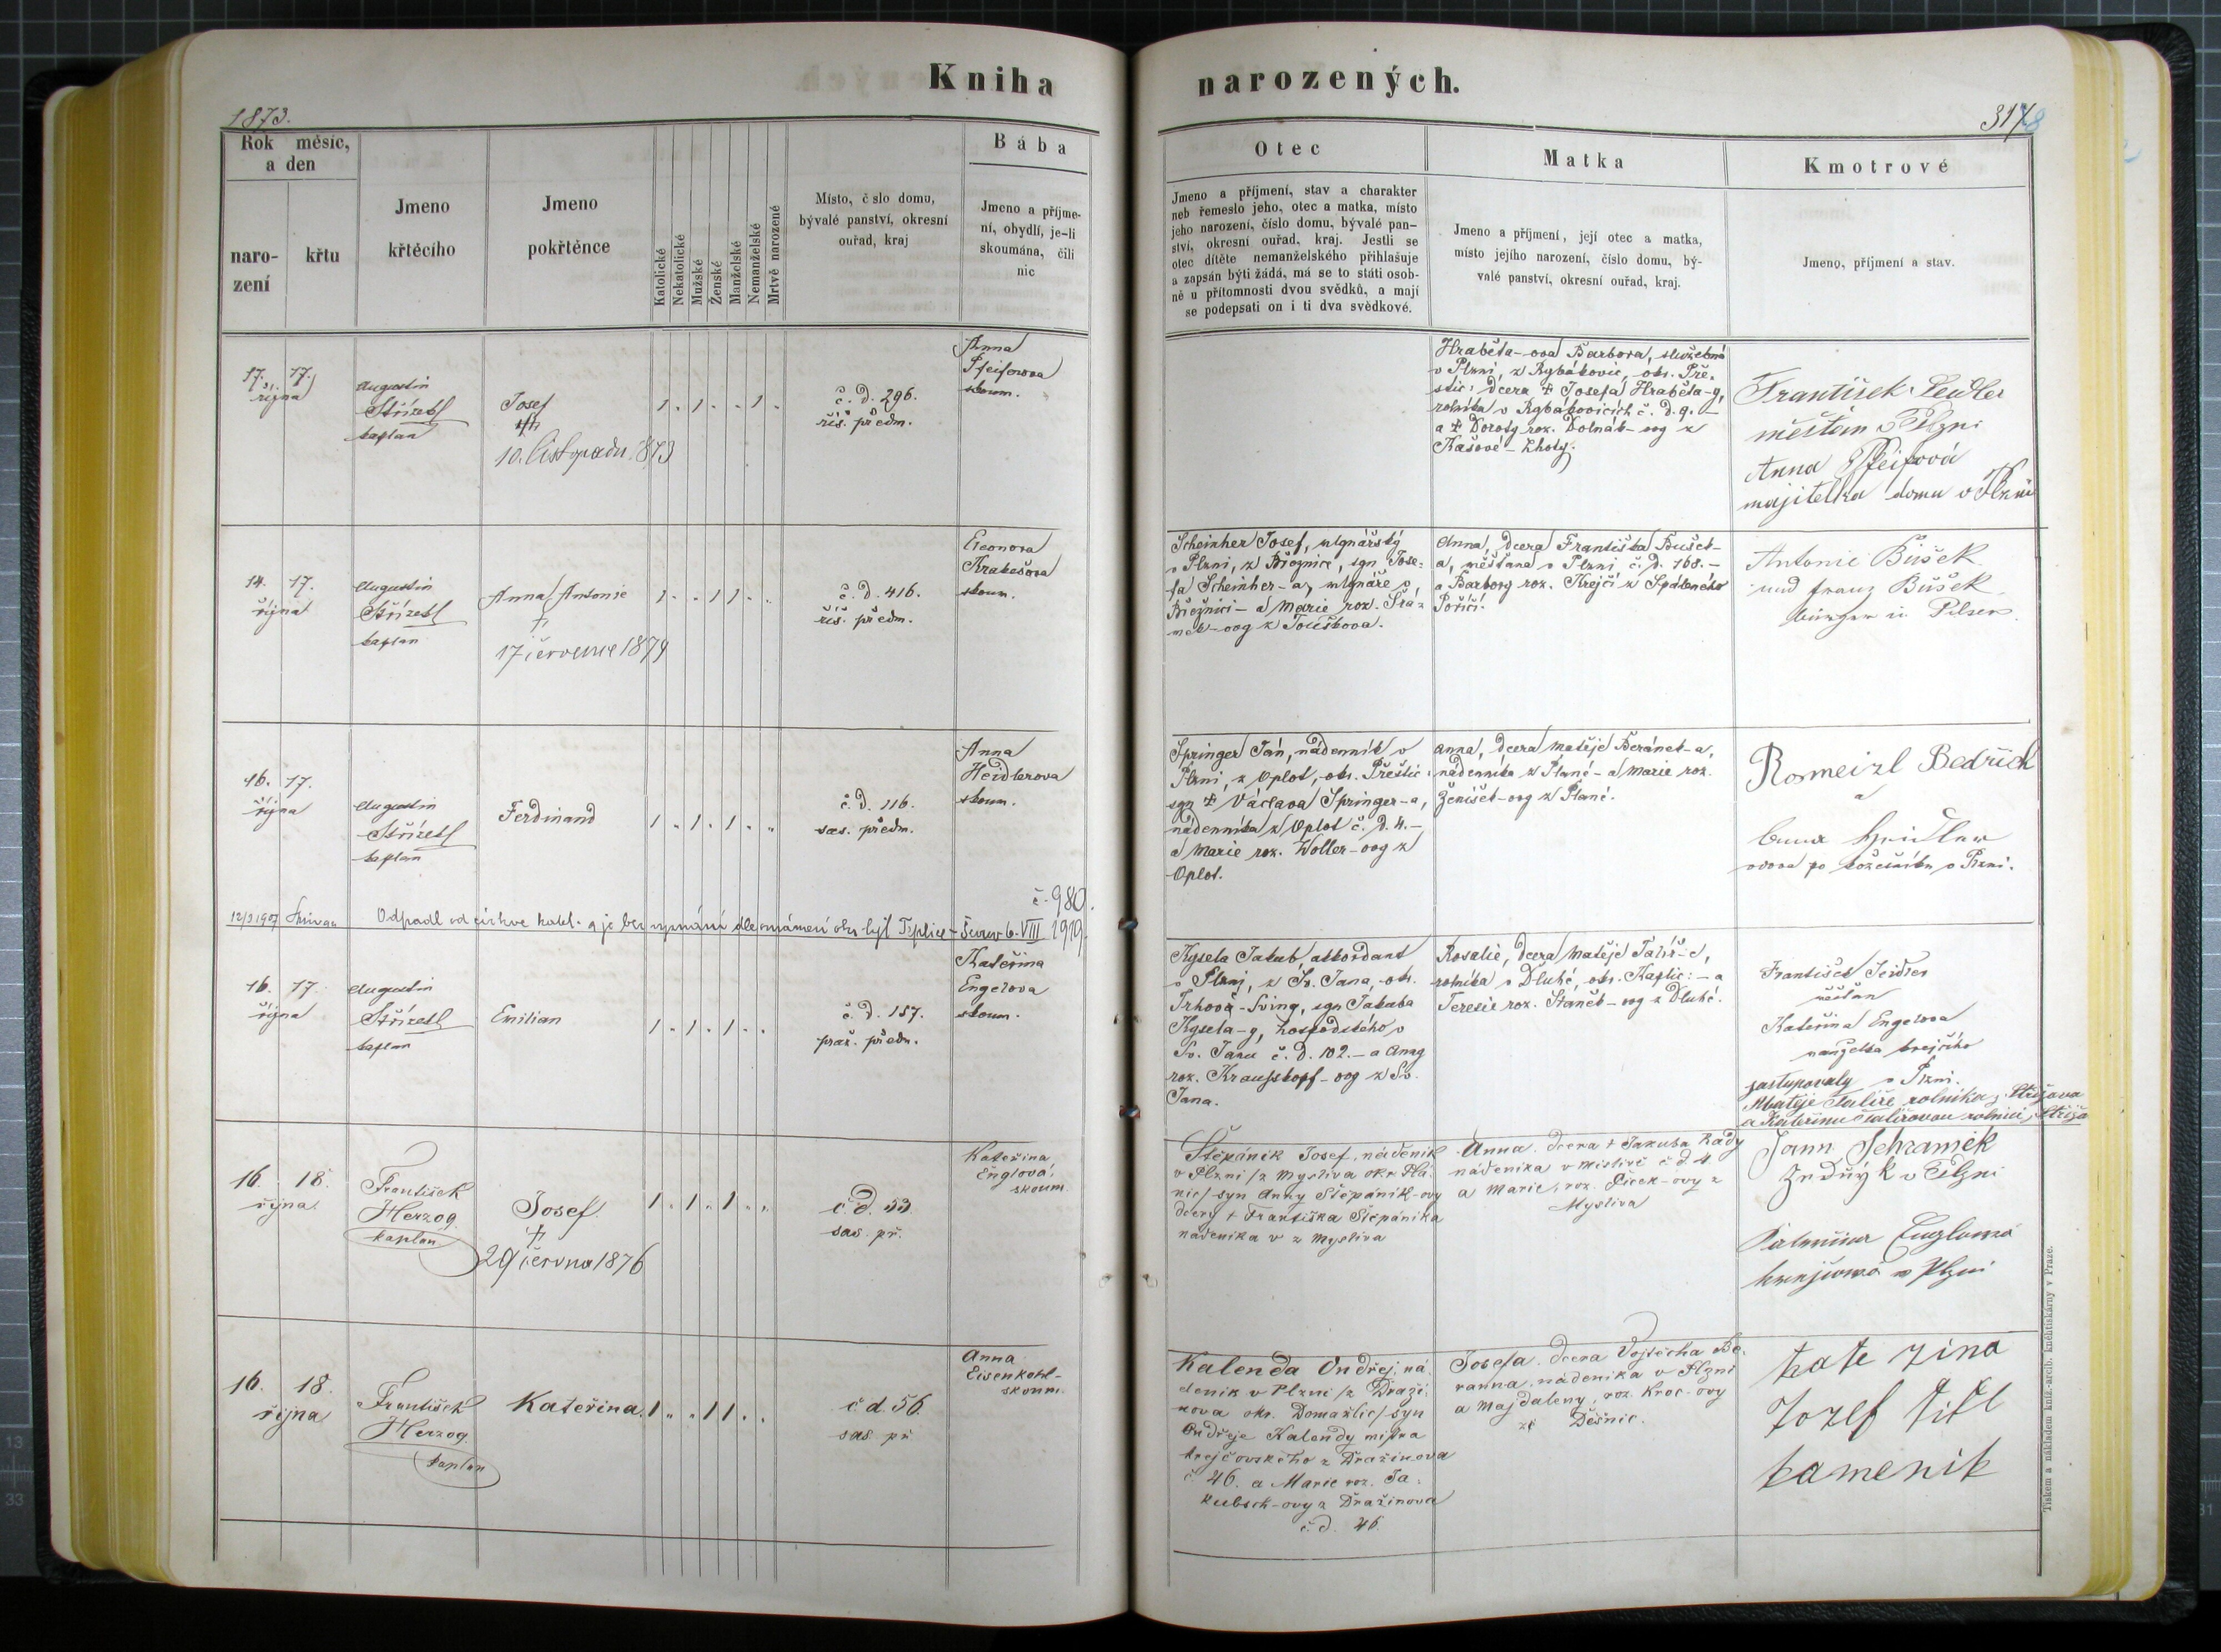 Kniha narozených.
1873.
317
Rok měsíc,
a den
naro-
zení
křtu
Jmeno
křtěcího
Jmeno
pokřtěnce
Katolické
Nekatolické
Mužské
Ženské
Manželské
Nemanželské
Mrtvě narozené
Místo, č slo domu,
bývalé panství, okresní
ouřad, kraj
Bába
Jmeno a příjme-
ní, obydlí, je-li
skoumána, čili
nic
Otec
Jmeno a příjmení, stav a charakter
neb řemeslo jeho, otec a matka, místo
jeho narození, číslo domu, bývalé pan-
ství, okresní ouřad, kraj. Jestli se
otec dítěte nemanželského přihlašuje
a zapsán býti žádá, má se to státi osob-
ně u přítomnosti dvou svědků, a mají
se podepsati on i ti dva svědkové.
Matka
Jmeno a příjmení, její otec a matka,
místo jejího narození, číslo domu, bý-
valé panství, okresní ouřad, kraj.
Kmotrové
Jmeno, příjmení a stav.
17. 17.
října
Augustin
Střízek
kaplan
Josef
10. listopadu 1873
1 . 1 . . 1 .
č. d. 296.
říš. předm.
Anna
Pfeiferova
skoum.
Hraběta-ova Barbora, služebná
v Plzni, z Rybákovic, okr. Pře-
štic: dcera † Josefa Hraběta-y,
rolníka v Rybákovicích č. d. 9. –
a † Doroty roz. Dolnák-ovy z
Kašové-Lhoty.
František Seidler
měštan v Plzni
Anna Pfeifrová
majitelka domu v Plzni
14. 17.
října
Augustin
Střízek
kaplan
Anna Antonie
†
17 července 1879
1 . . 1 1 . .
č. d. 416.
říš. předm.
Eleonora
Krakešova
skoum.
Scheinher Josef, mlynářský
v Plzni, z Březnice, syn Jose-
fa Scheinher-a, mlynáře v
Březnici – a Marie roz. Srá-
mek-ovy z Touškova.
Anna, dcera Františka Bušek-
a, měšťana v Plzni č. d. 160. –
a Barbory roz. Krejčí z Spáleného
Poříčí.
Antonie Bušek
und Franz Bušek
bürger in Pilsen
16. 17.
října
Augustin
Střízek
kaplan
Ferdinand
1 . 1 . 1 . .
č. d. 116.
sas. předm.
Anna
Heidlerova
skoum.
Springer Jan, nádenník v
Plzni, z Oplot, okr. Přeštic:
syn † Václava Springer-a,
nádenníka z Oplot č. d. 4. –
a Marie roz. Woller-ovy z
Oplot.
Anna, dcera Matěje Beránek-a,
nádenníka z Plané – a Marie roz.
Ženíšek-ovy z Plané.
Rosmeizl Bedřich
a
Anna Heidler
vdova po koželuhu v Plzni.
č. 980.
12/3 1907
Odpadl od církve katol. a je bez vyznání dle oznámení okr. hejt. Teplice-Šanov 6. VIII 1919.
16. 17.
října
Augustin
Střízek
kaplan
Emilian
1 . 1 . 1 . .
č. d. 157.
praž. předm.
Kateřina
Engelova
skoum.
Kysela Jakub, akkordant
v Plzni, z Sv. Jana, okr.
Trhová-Sviny, syn Jakuba
Kysela-y, hospodského v
Sv. Janu č. d. 102. – a Anny
roz. Krausskopf-ovy z Sv.
Jana.
Rosalie, dcera Matěje Talíř-e,
rolníka v Dluhé, okr. Kaplic: – a
Teresie roz. Staněk-ovy z Dluhé.
František Seidler
měšťan
Kateřina Engelova
manželka krejčího
zastupovaly v Plzni.
Matěje Talíře rolníka z Střižova
a Kateřinu Talířovou rolnici z Střižo
16. 18.
října
František
Herzog
kaplan
Josef.
†
29 června 1876
1 . 1 . 1 . .
č. d. 53.
sas. př.
Kateřina
Englová
skoum.
Štěpánik Josef, nádeník
v Plzni /z Mysliva okr. Plá-
nic/ syn Anny Štěpánik-ovy
dcery † Františka Štěpánika
nádenika v z Mysliva
Anna dcera † Jakuba Rady
nádenika v Mislivě č d. 4
a Marie, roz. Čiček-ovy z
Mysliva
Jann Schramek
Zedník v Plzni
Kateřina Englowa
krejčowá w Plzni
16. 18.
října
František
Herzog.
kaplan
Kateřina.
1 . . 1 1 . .
č d. 56.
sas. př
Anna
Eisenkohl-
skoum.
Kalenda Ondřej, ná-
deník v Plzni /z Draži-
nova okr. Domažlic/ syn
Ondřeje Kalendy mistra
krejčovského z Dražinova
č. 46. a Marie roz. Ja-
kubsch-ovy z Dražinova
č. d. 46.
Josefa. dcera Vojtěcha Be-
ranna, nádenika v Plzni
a Majdaleny, roz. Kroc-ovy
ze Děšnic.
kate zina
Jozef Titl
kamenik
Tiskem a nákladem kníž.-arcib. knihtiskárny v Praze.